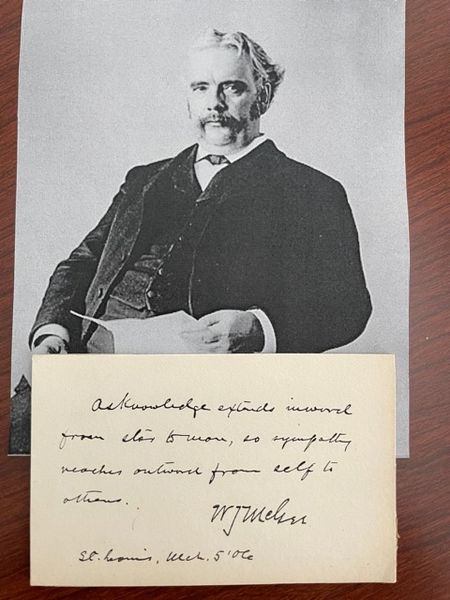 As knowledge extends inward
from star to man, so sympathy
reaches outward from self to
others.
WJ McGee
St. Louis, Mch. 5 '06